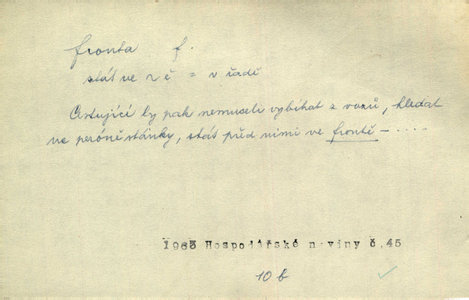 fronta f.
stát ve ~ě = v řadě
Cestující by pak nemuseli vybíhat z vozů, hledat
na peróně stánky, stát před nimi ve frontě – ....
1963 Hospodářské noviny č.45
10 b